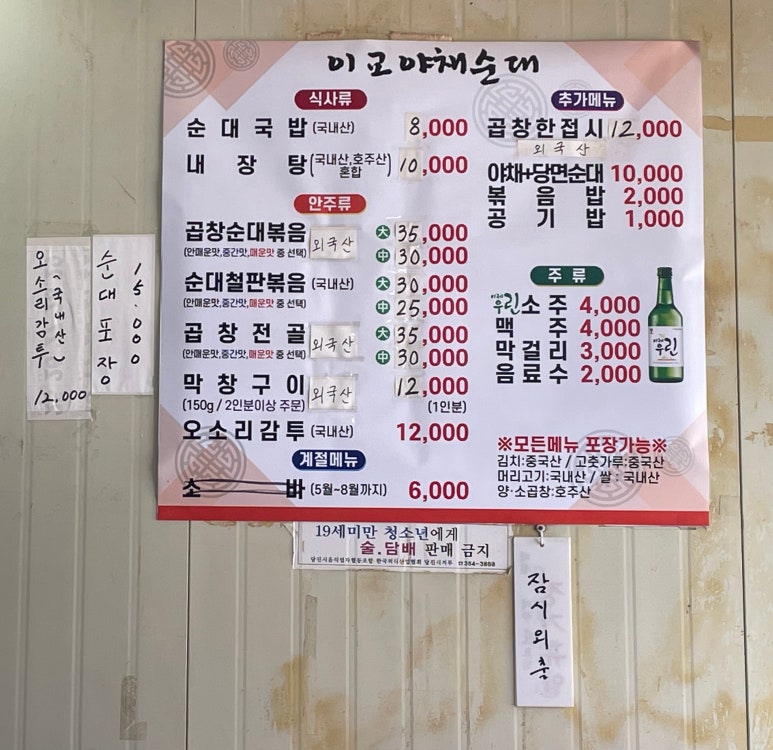 이교야채순대
식사류
순대국밥 (국내산) 8,000
내장탕 (국내산,호주산 혼합) 10,000
안주류
곱창순대볶음 외국산 大 35,000
(안매운맛,중간맛,매운맛 중 선택) 中 30,000
순대철판볶음 (국내산) 大 30,000
(안매운맛,중간맛,매운맛 중 선택) 中 25,000
곱창전골 외국산 大 35,000
(안매운맛,중간맛,매운맛 중 선택) 中 30,000
막창구이 외국산 12,000
(150g / 2인분이상 주문) (1인분)
오소리감투 (국내산) 12,000
계절메뉴
소바 (5월~8월까지) 6,000
추가메뉴
곱창한접시 12,000
외국산
야채+당면순대 10,000
볶음밥 2,000
공기밥 1,000
주류
이제우린 소주 4,000
맥주 4,000
막걸리 3,000
음료수 2,000
이제우린
※모든메뉴 포장가능※
김치:중국산 / 고춧가루:중국산
머리고기:국내산 / 쌀 : 국내산
양·소곱창:호주산
오소리감투
(국내산)
12,000
순대포장
15.000
19세미만 청소년에게
술.담배 판매 금지
당진시음식업자협동조합 한국외식산업협회 당진시지부 ☎354-3888
잠시외출